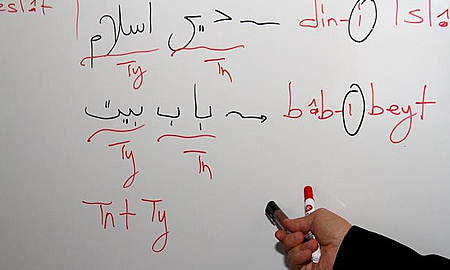 دين اسلام din-i Islâ
Ty Tn
باب بيت bâb-i beyt
Ty Tn
Tn + Ty